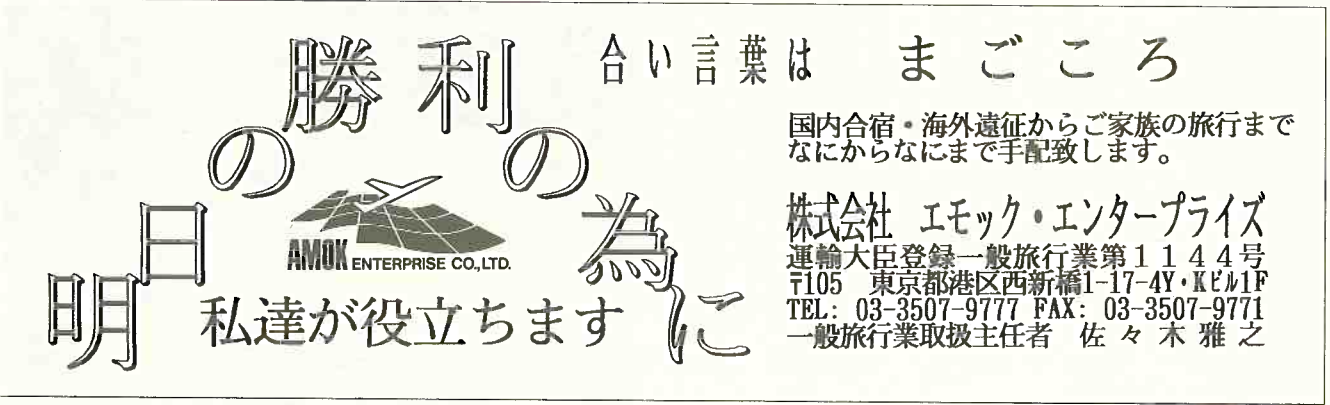 明日の勝利の為に
AMOK ENTERPRISE CO.,LTD.
私達が役立ちます
合い言葉は　まごころ
国内合宿・海外遠征からご家族の旅行まで
なにからなにまで手配致します。
株式会社　エモック・エンタープライズ
運輸大臣登録一般旅行業第1144号
〒105　東京都港区西新橋1-17-4Y・Kビル1F
TEL: 03-3507-9777 FAX: 03-3507-9771
一般旅行業取扱主任者　佐々木雅之